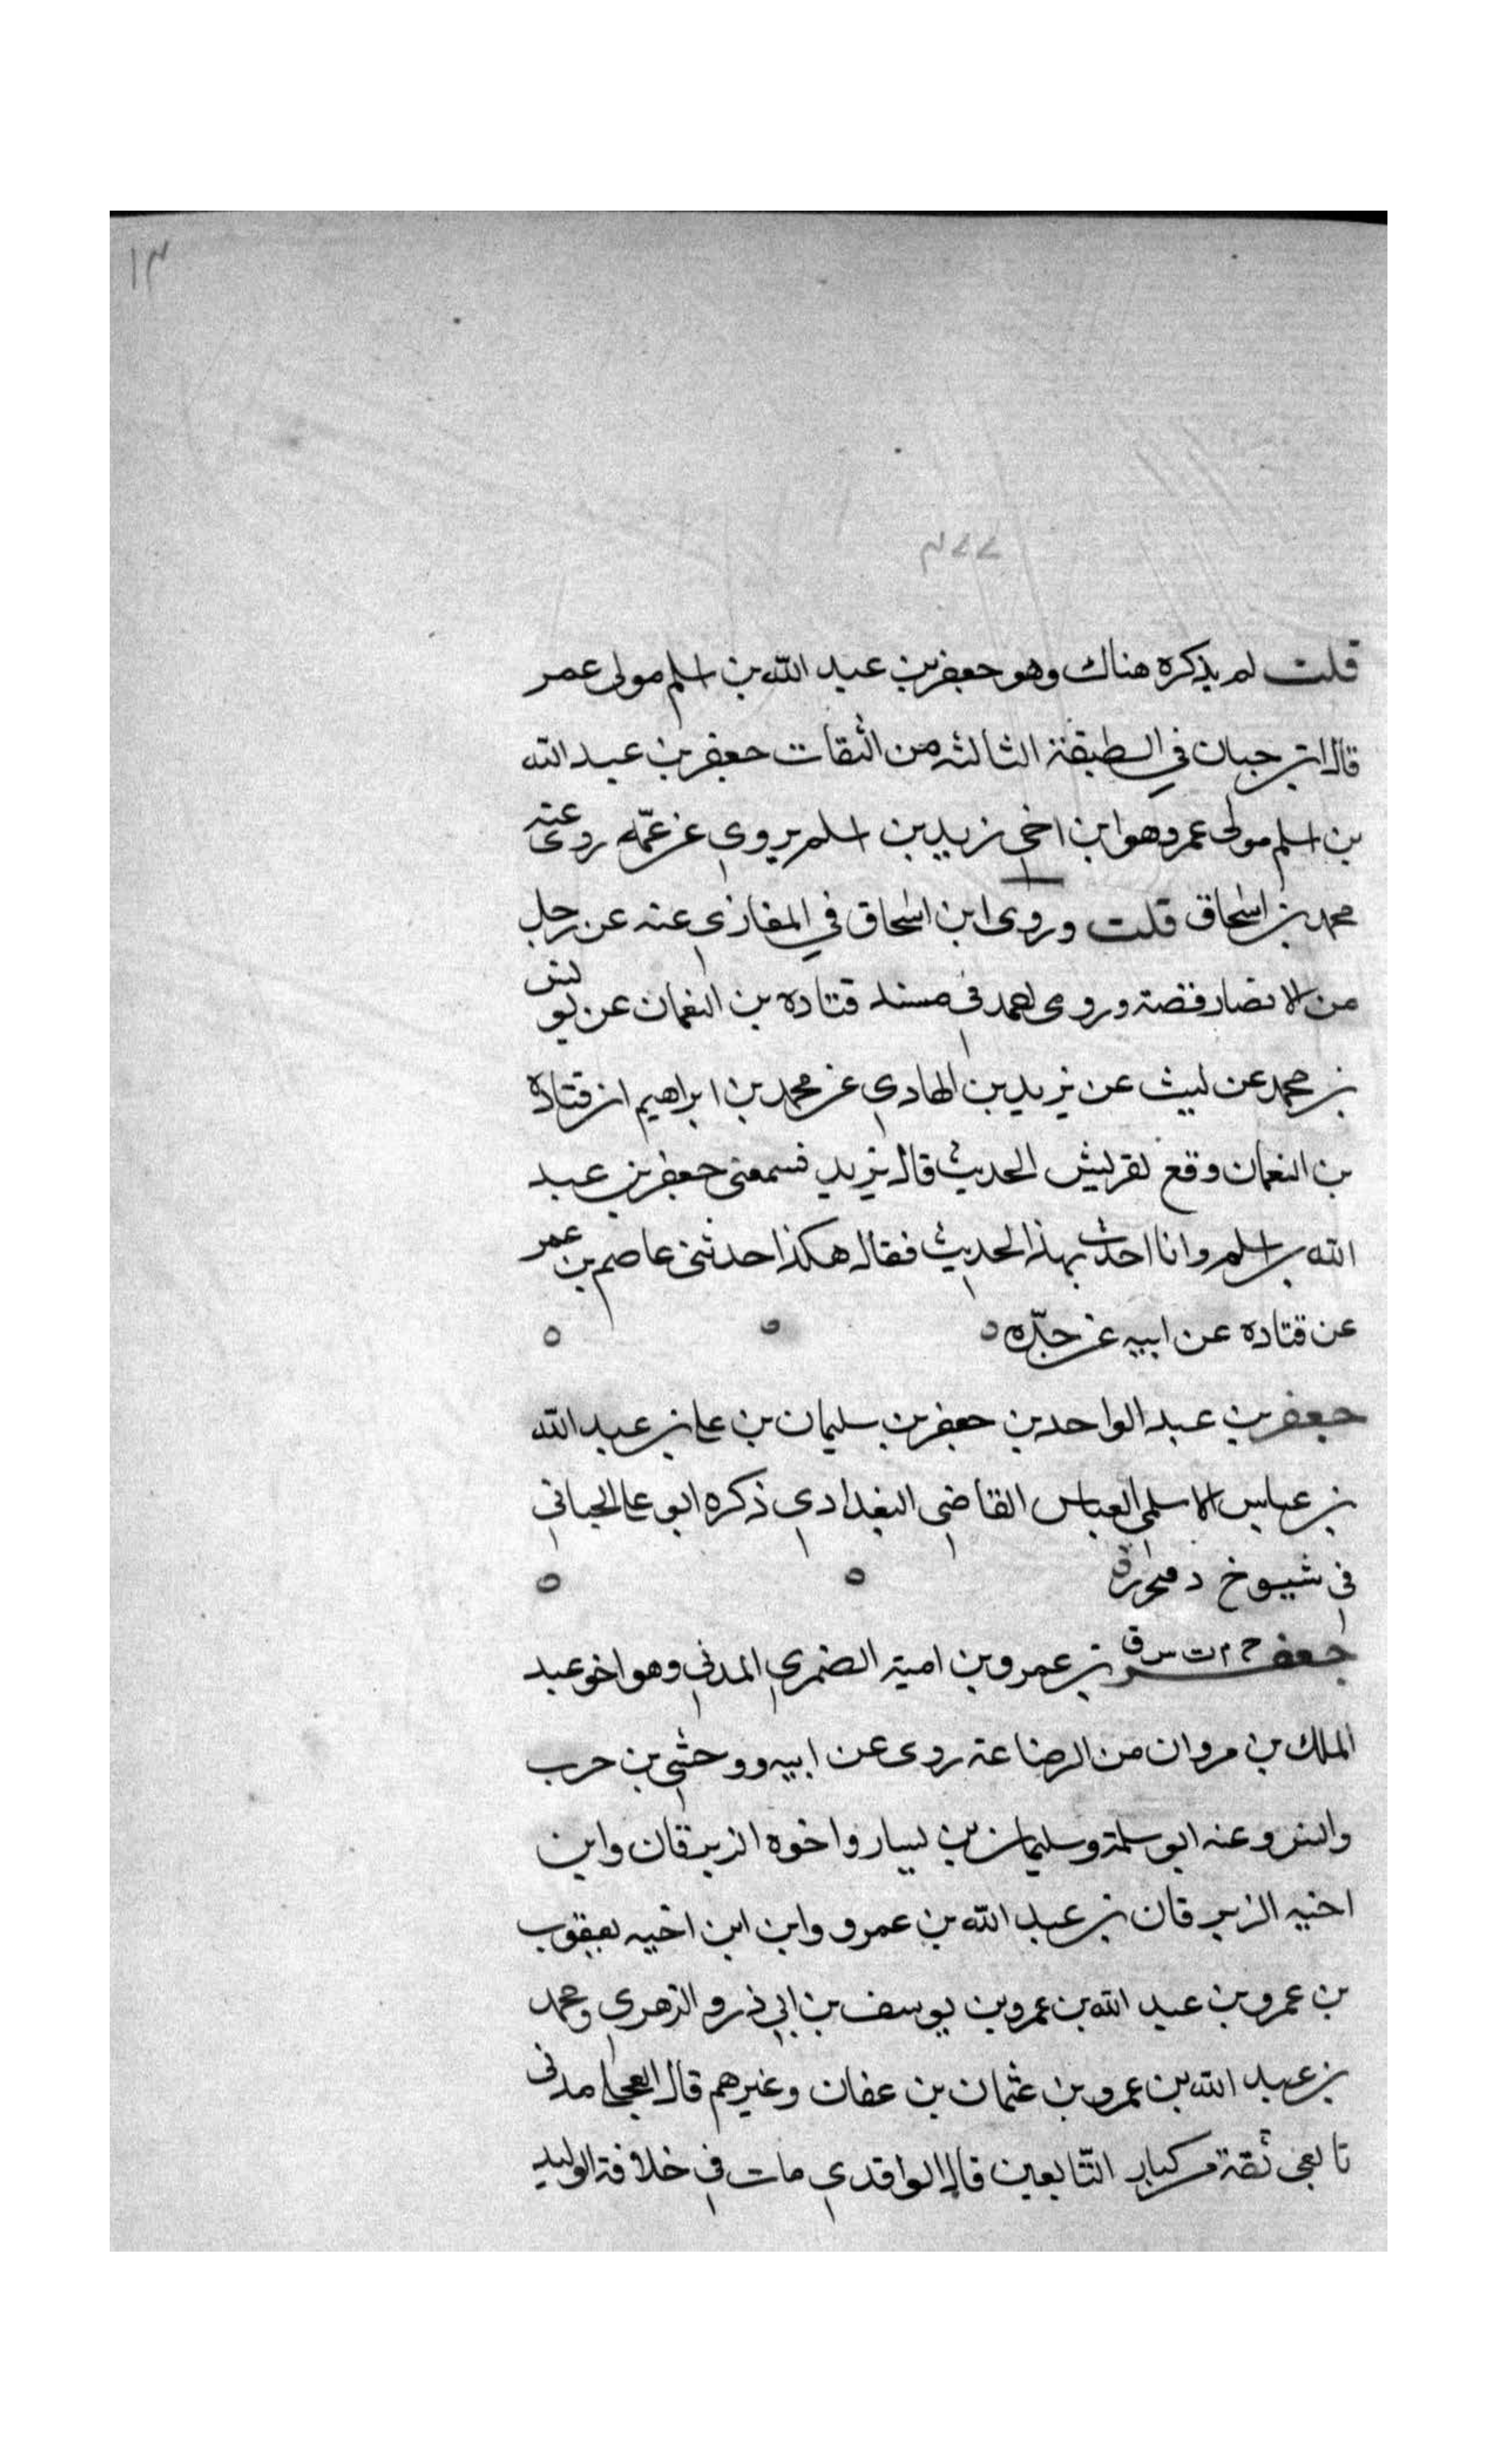 ١٣
قلت لم يذكره هناك وهو جعفر بن عبد الله بن اسلم مولى عمر
قال ابن حبان في الطبقة الثالثه من الثقات جعفر بن عبد الله
بن اسلم مولى عمر وهو ابن اخي زيد بن اسلم يروي عن عمّه روى عنه
محمد بن اسحاق قلت وروى ابن اسحاق في المغازي عنه عن رجل
من الانصار قصة وروى احمد في مسند قتاده بن النعمان عن يونس
بن محمد عن ليث عن يزيد بن الهادي عن محمد بن ابراهيم ان قتادة
بن النعمان وقع لقريش الحديث قال يزيد فسمعني جعفر بن عبد
الله بن اسلم وانا احدث بهذا الحديث فقال هكذا حدثني عاصم بن عمر
عن قتاده عن ابيه عن جدّه
جعفر بن عبد الواحد بن جعفر بن سليمان بن علي بن عبد الله
بن عباس الاسلمي العباس القاضي البغدادي ذكره ابو علي الجياني
في شيوخ د
جعفر خ م ت س ق بن عمرو بن امية الضمري المدني وهو اخو عبد
الملك بن مروان من الرضاعة روى عن ابيه ووحشي بن حرب
وانس وعنه ابو سلمة وسليمان بن يسار واخوه الزبرقان وابن
اخيه الزبرقان بن عبد الله بن عمرو وابن ابن اخيه يعقوب
بن عمرو بن عبد الله بن عمرو بن يوسف بن ابي ذر والزهري ومحمد
بن عبد الله بن عمرو بن عثمان بن عفان وغيرهم قال العجلي مدني
تابعي ثقة من كبار التّابعين قال الواقدي مات في خلافة الوليد